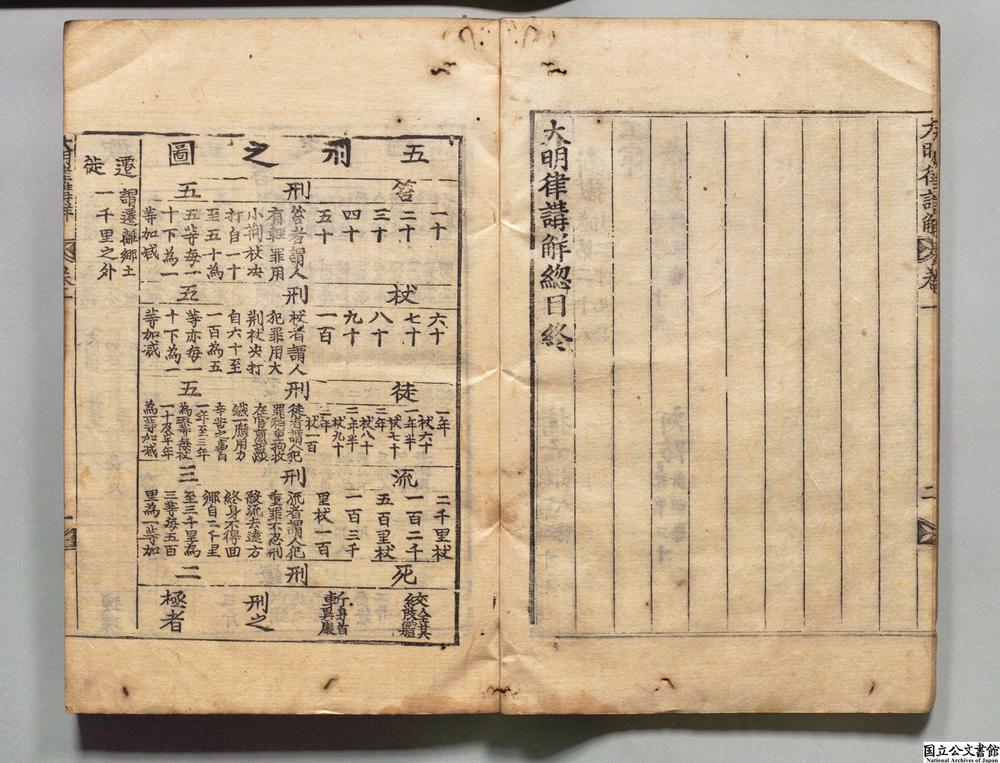 大明律講解卷一
二
大明律講解總目終
五刑之圖
笞刑五
一十
二十
三十
四十
五十
笞者謂人
有輕罪用
小荊杖决
打自一十
至五十為
五等每一
十下為一
等加减
杖刑五
六十
七十
八十
九十
一百
杖者謂人
犯罪用大
荊杖决打
自六十至
一百為五
等亦每一
十下為一
等加减
徒刑五
一年
杖六十
一年半
杖七十
二年
杖八十
二年半
杖九十
三年
杖一百
徒者謂人犯
罪稍重拘收
在官煎塩炒
鐵一應用力
辛苦之事自
一年至三年
為五等每杖
一十及半年
為一等加减
流刑三
二千里杖
一百二千
五百里杖
一百三千
里杖一百
流者謂人犯
重罪不忍刑
殺流去遠方
終身不得回
鄉自二千里
至三千里為
三等每五百
里為一等加
死刑二
絞全其肢體
斬身首異處
刑之
極者
遷徙
謂遷離鄉土
一千里之外
国立公文書館
National Archives of Japan